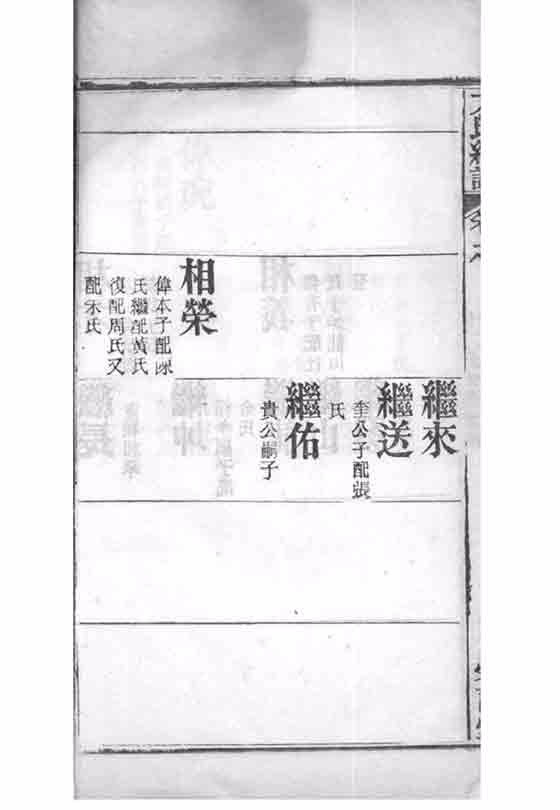 相榮
偉本子配陳
氏繼配黃氏
復配周氏又
配宋氏
繼來
繼送
奎公子配張
氏
繼佑
貴公嗣子